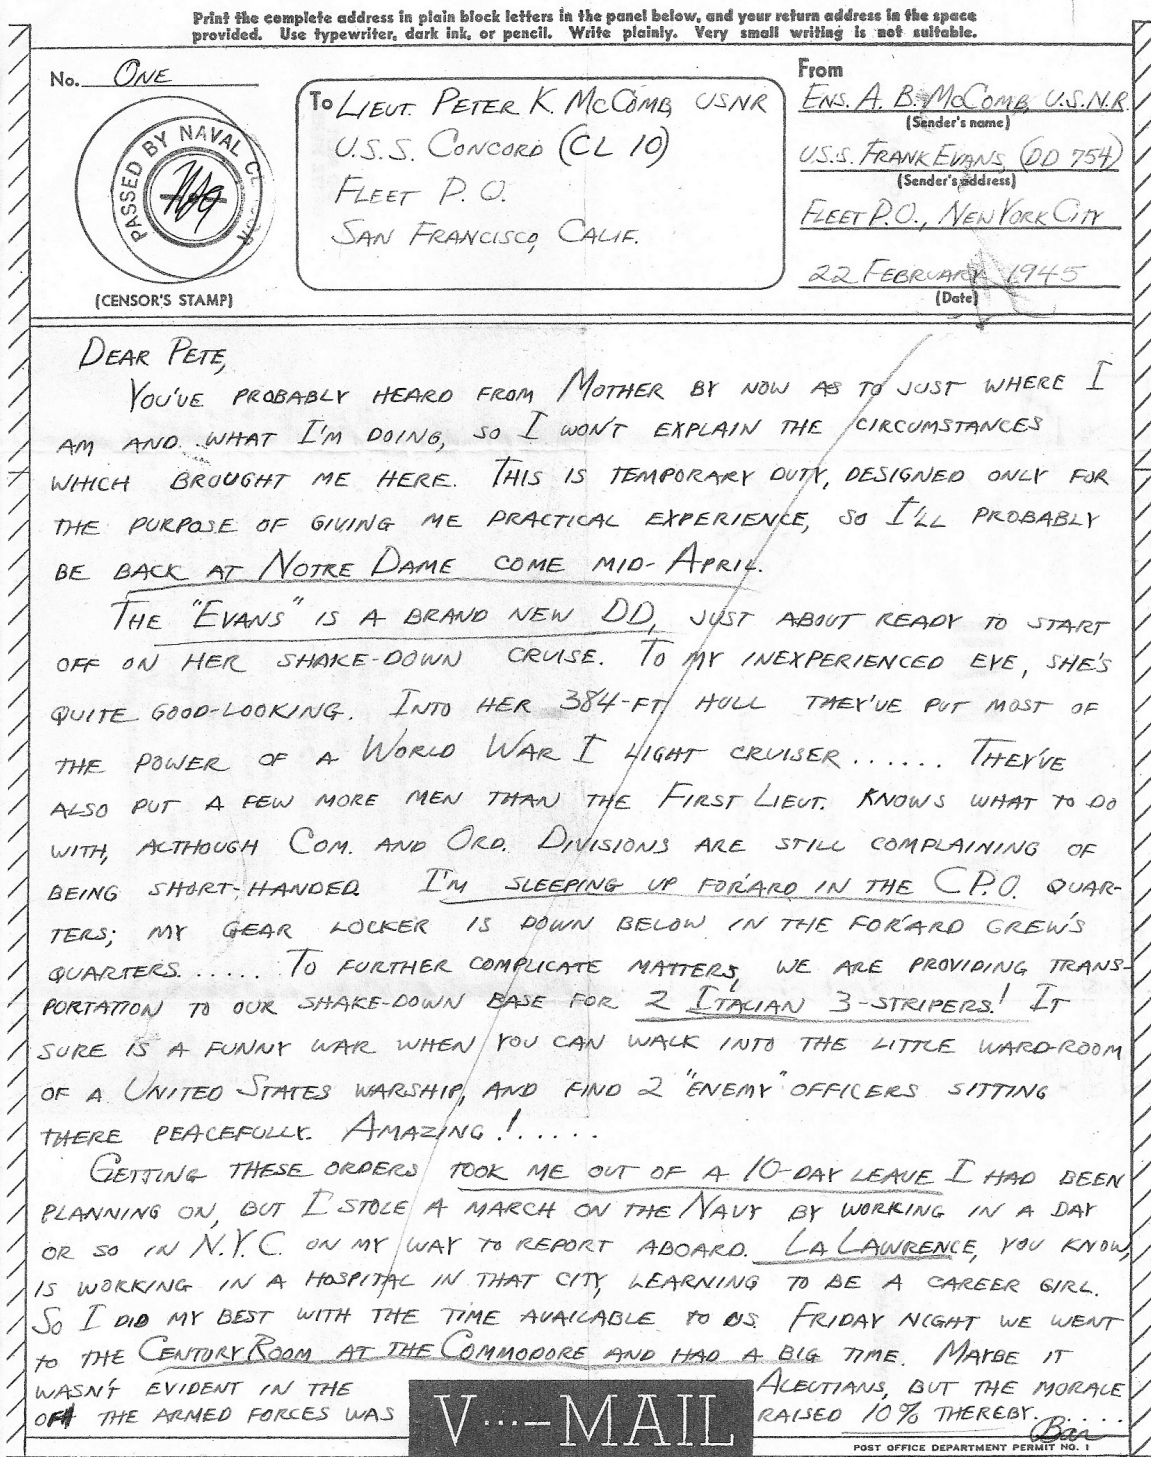 Print the complete address in plain block letters in the panel below, and your return address in the space
provided. Use typewriter, dark ink, or pencil. Write plainly. Very small writing is not suitable.
No. ONE
PASSED BY NAVAL
(CENSOR'S STAMP)
To LIEUT. PETER K. McCOMB, USNR
U.S.S. CONCORD (CL 10)
FLEET P.O.
SAN FRANCISCO, CALIF.
From
ENS. A. B. McCOMB, U.S.N.R.
(Sender's name)
U.S.S. FRANK EVANS, (DD 754)
(Sender's address)
FLEET P.O., NEW YORK CITY
22 FEBRUARY 1945
(Date)
DEAR PETE,
YOU'VE PROBABLY HEARD FROM MOTHER BY NOW AS TO JUST WHERE I
AM AND WHAT I'M DOING, SO I WON'T EXPLAIN THE CIRCUMSTANCES
WHICH BROUGHT ME HERE. THIS IS TEMPORARY DUTY, DESIGNED ONLY FOR
THE PURPOSE OF GIVING ME PRACTICAL EXPERIENCE, SO I'LL PROBABLY
BE BACK AT NOTRE DAME COME MID-APRIL.
THE "EVANS" IS A BRAND NEW DD, JUST ABOUT READY TO START
OFF ON HER SHAKE-DOWN CRUISE. TO MY INEXPERIENCED EYE, SHE'S
QUITE GOOD-LOOKING. INTO HER 384-FT HULL THEY'VE PUT MOST OF
THE POWER OF A WORLD WAR I LIGHT CRUISER...... THEY'VE
ALSO PUT A FEW MORE MEN THAN THE FIRST LIEUT. KNOWS WHAT TO DO
WITH, ALTHOUGH COM. AND ORD. DIVISIONS ARE STILL COMPLAINING OF
BEING SHORT-HANDED. I'M SLEEPING UP FOR'ARD IN THE C.P.O. QUAR-
TERS; MY GEAR LOCKER IS DOWN BELOW IN THE FOR'ARD CREW'S
QUARTERS...... TO FURTHER COMPLICATE MATTERS, WE ARE PROVIDING TRANS-
PORTATION TO OUR SHAKE-DOWN BASE FOR 2 ITALIAN 3-STRIPERS! IT
SURE IS A FUNNY WAR WHEN YOU CAN WALK INTO THE LITTLE WARD-ROOM
OF A UNITED STATES WARSHIP, AND FIND 2 "ENEMY" OFFICERS SITTING
THERE PEACEFULLY. AMAZING!.....
GETTING THESE ORDERS TOOK ME OUT OF A 10-DAY LEAVE I HAD BEEN
PLANNING ON, BUT I STOLE A MARCH ON THE NAVY BY WORKING IN A DAY
OR SO IN N.Y.C. ON MY WAY TO REPORT ABOARD. LA LAWRENCE, YOU KNOW,
IS WORKING IN A HOSPITAL IN THAT CITY, LEARNING TO BE A CAREER GIRL.
SO I DID MY BEST WITH THE TIME AVAILABLE TO US. FRIDAY NIGHT WE WENT
TO THE CENTURY ROOM AT THE COMMODORE AND HAD A BIG TIME. MAYBE IT
WASN'T EVIDENT IN THE ALEUTIANS, BUT THE MORALE
OF THE ARMED FORCES WAS RAISED 10% THEREBY.....
Bar
V···—MAIL
POST OFFICE DEPARTMENT PERMIT NO. 1